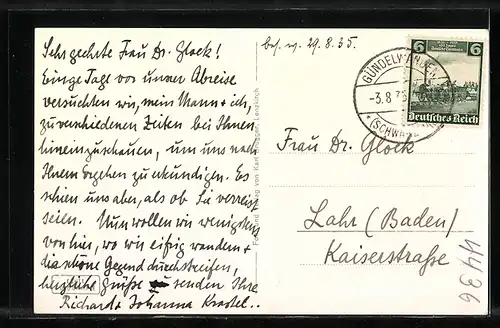 Sehr geehrte Frau Dr. Glock!
Einige Tage vor unserer Abreise
versuchten wir, mein Mann + ich,
zu verschiedenen Zeiten bei Ihnen
hineinzuschauen, um uns nach
Ihrem Ergehen zu erkundigen. Es
schien uns aber, als ob Sie verreist
seien. Nun wollen wir wenigstens
von hier, wo wir eifrig wandern +
die schöne Gegend durchstreifen,
herzliche Grüße senden Ihre
Richard + Johanna
29.8.35.
6 6
Deutsches Reich
GÜNDELWANGEN
-3.8.35
(SCHWARZW
Frau Dr. Glock
Lahr (Baden)
Kaiserstraße
4436
Verlag von Karl Lenzkirch